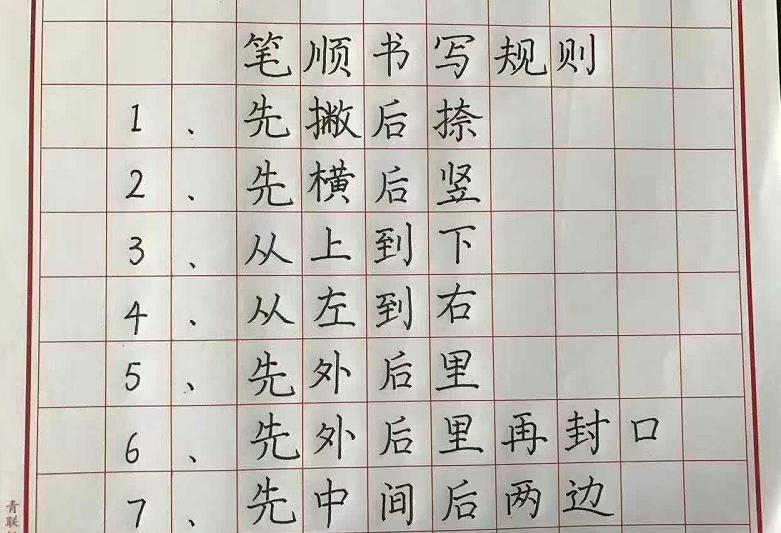 笔顺书写规则
1、先撇后捺
2、先横后竖
3、从上到下
4、从左到右
5、先外后里
6、先外后里再封口
7、先中间后两边
青联